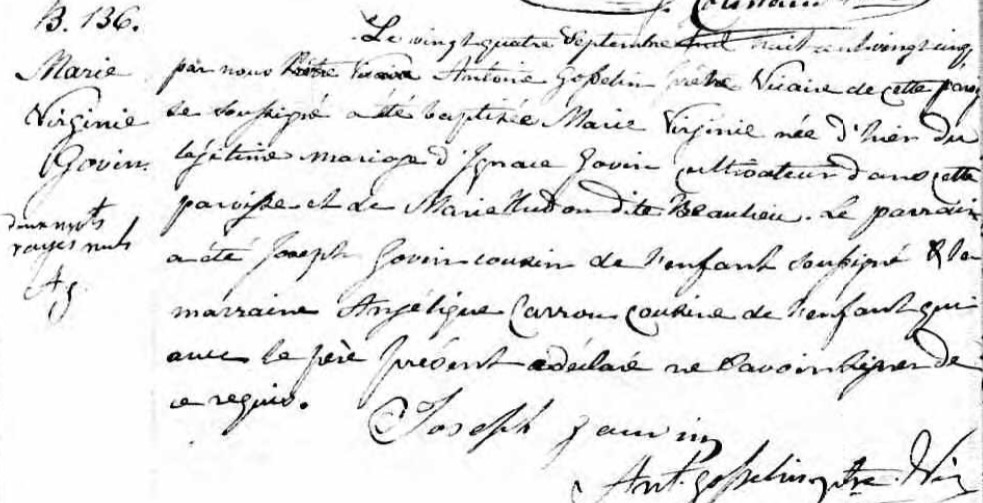 B. 136.
Marie
Virginie
Govin.
deux mots
rayés nuls
A g
Le vingt quatre Septembre mil huit cent vingt cinq,
par nous Prêtre Vicaire Antoine Gosselin prêtre Vicaire de cette parois
se soussigné a été baptisée Marie Virginie née d'hier du
légitime mariage d'Ignace Govin cultivateur dans cette
paroisse et de Marie Hudon dite Beaulieu. Le parrain
a été Joseph Govin cousin de l'enfant soussigné & la
marraine Angélique Carron cousine de l'enfant qui
avec le père présent a déclaré ne savoir signer de
ce requis.
Joseph gauvin
Ant. gosselin ptre. Vic